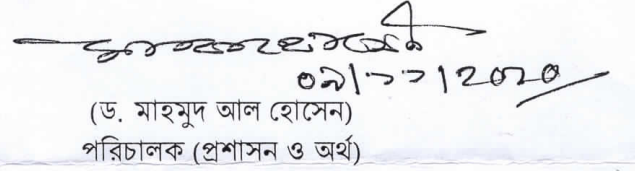 ০৯/১১/২০২০
(ড. মাহমুদ আল হোসেন)
পরিচালক (প্রশাসন ও অর্থ)